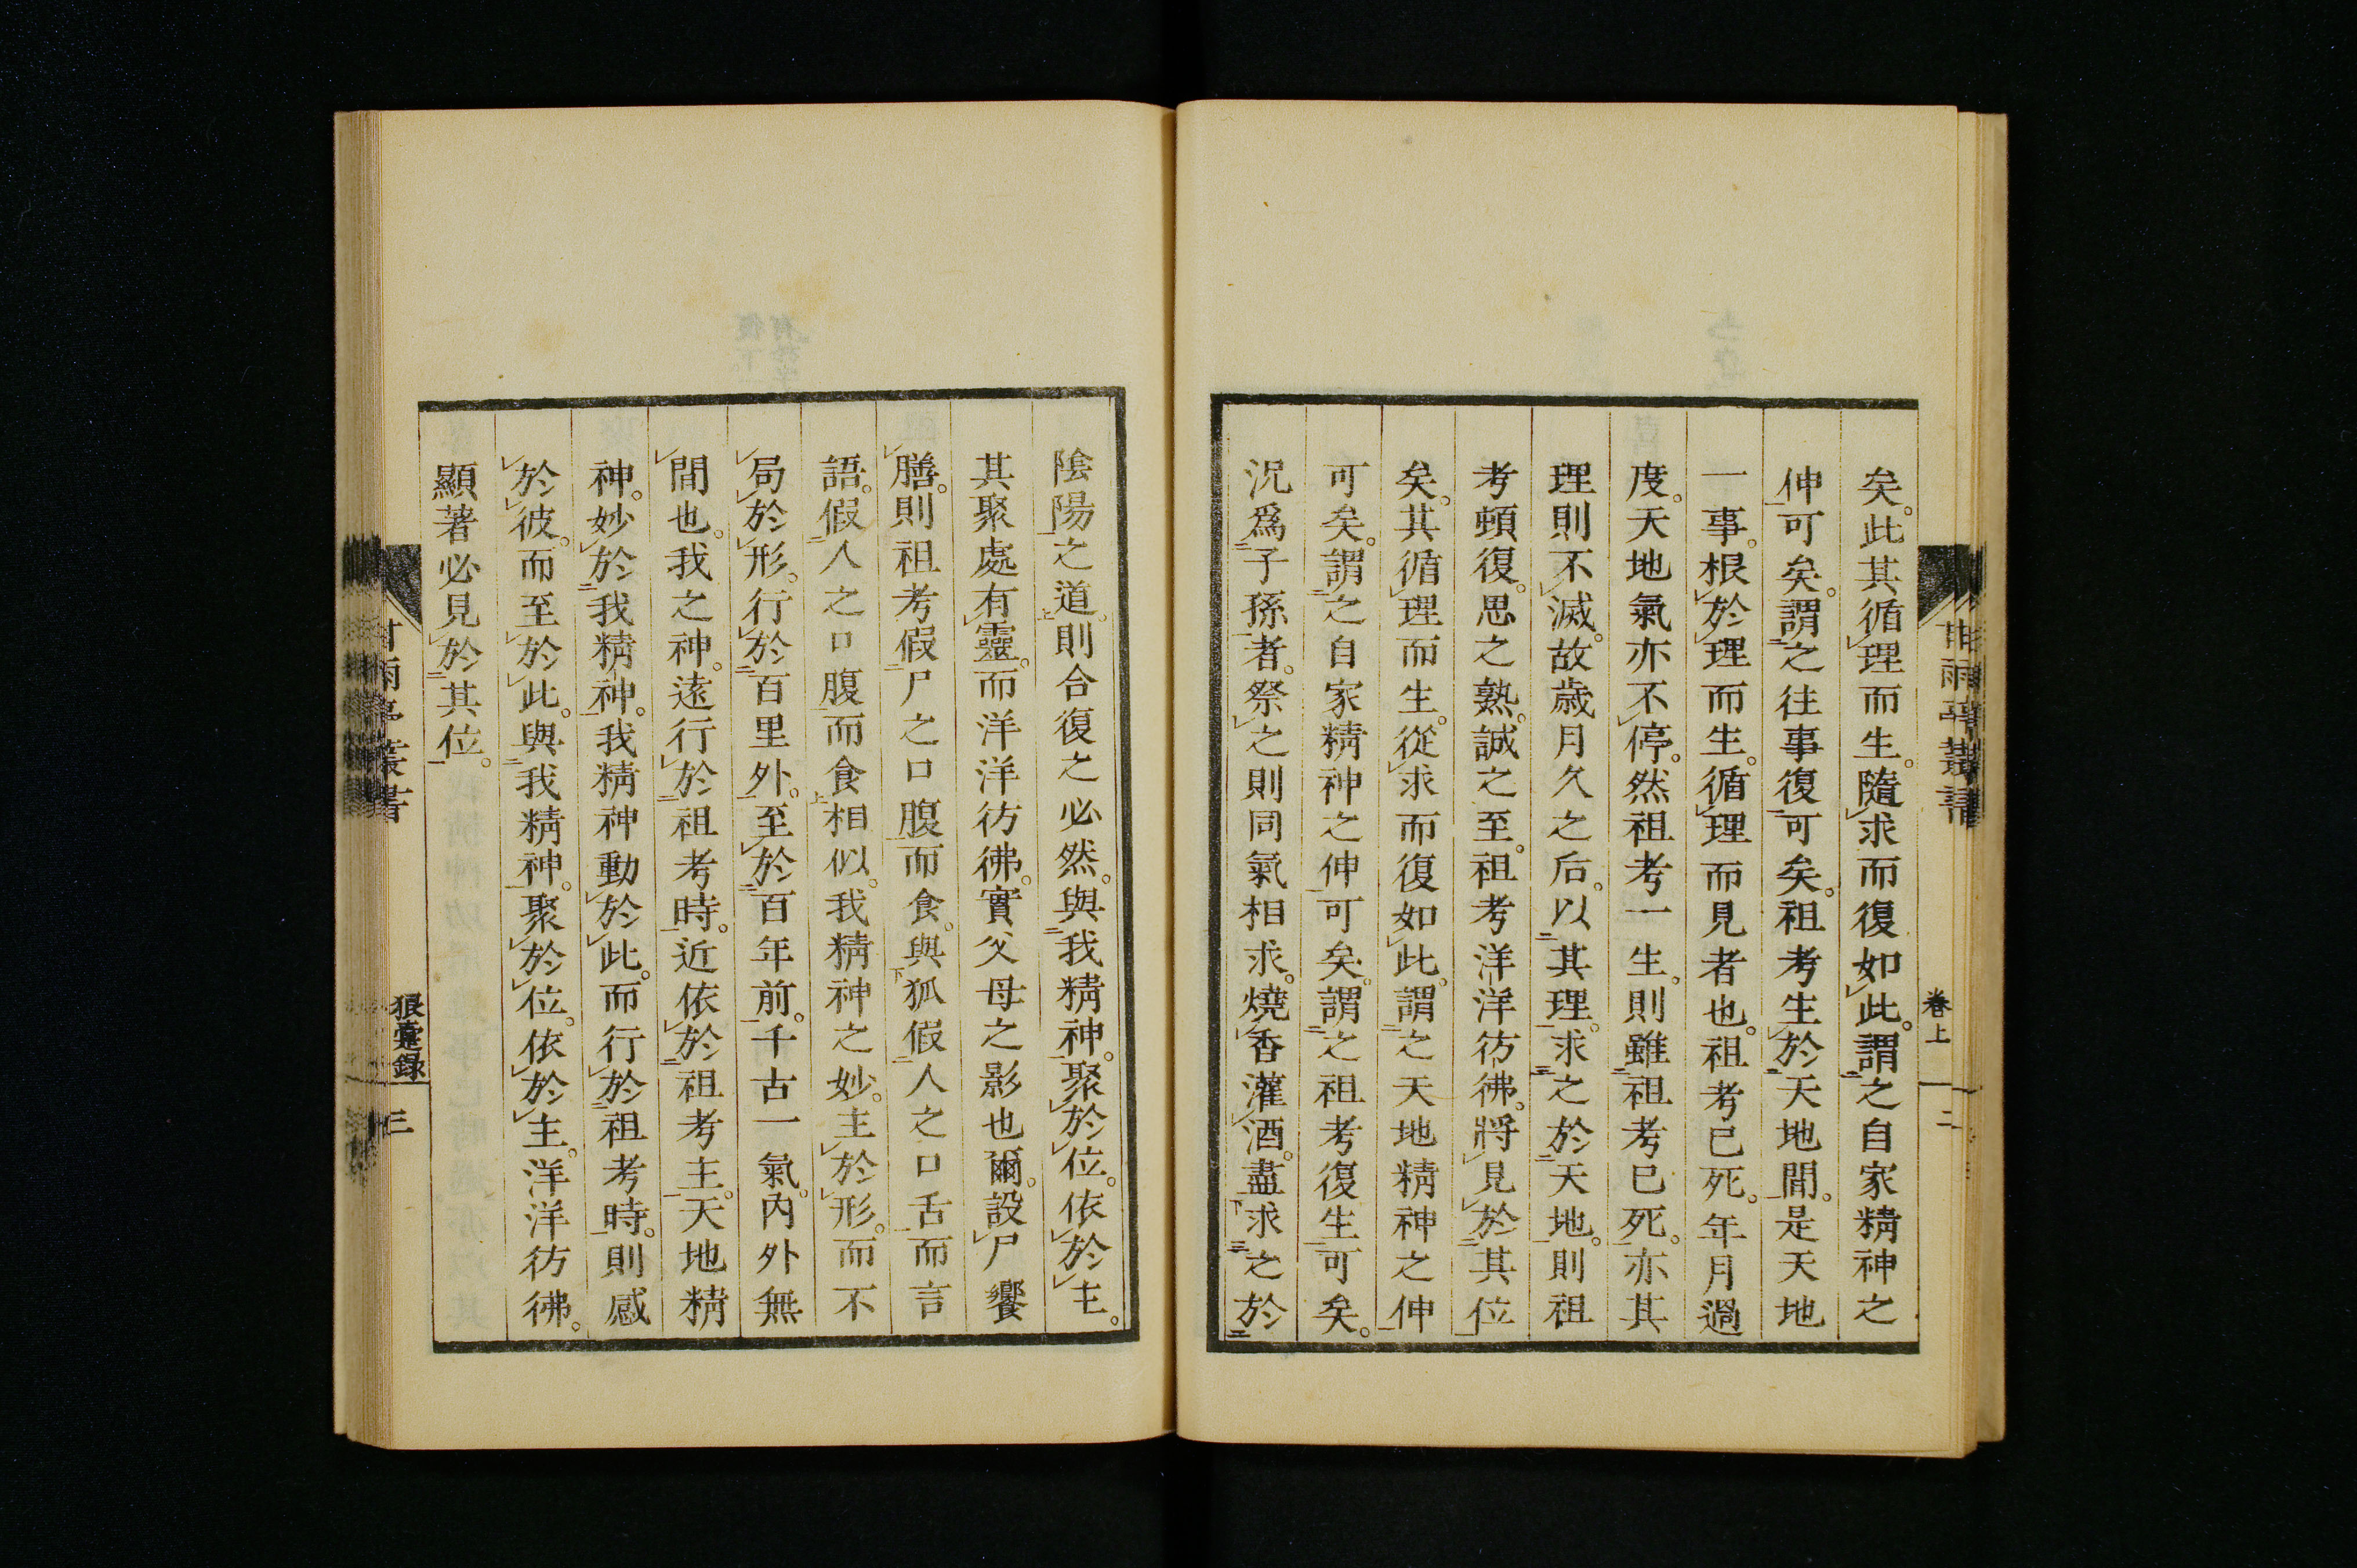 矣。此其循理而生。隨求而復如此。謂之自家精神之
伸可矣。謂之往事復可矣。祖考生於天地間。是天地
一事。根於理而生。循理而見者也。祖考已死。年月過
度。天地氣亦不停。然祖考一生。則雖祖考已死。亦其
理則不滅。故歲月久之后。以其理。求之於天地。則祖
考頓復。思之熟。誠之至。祖考洋洋彷彿。將見於其位
矣。其循理而生。從求而復如此。謂之天地精神之伸
可矣。謂之自家精神之伸可矣。謂之祖考復生可矣。
況爲子孫者。祭之則同氣相求。燒香灌酒。盡求之於
卷上
二
陰陽之道。則合復之必然。與我精神。聚於位。依於主。
其聚處有靈。而洋洋彷彿。實父母之影也爾。設尸饗
膳。則祖考假尸之口腹而食。與狐假人之口舌而言
語。假人之口腹而食相似。我精神之妙。主於形。而不
局於形。行於百里外。至於百年前。千古一氣。內外無
間也。我之神。遠行於祖考時。近依於祖考主。天地精
神。妙於我精神。我精神動於此。而行於祖考時。則感
於彼。而至於此。與我精神。聚於位。依於主。洋洋彷彿。
顯著必見於其位。
甘雨亭叢書
狼疐錄
三